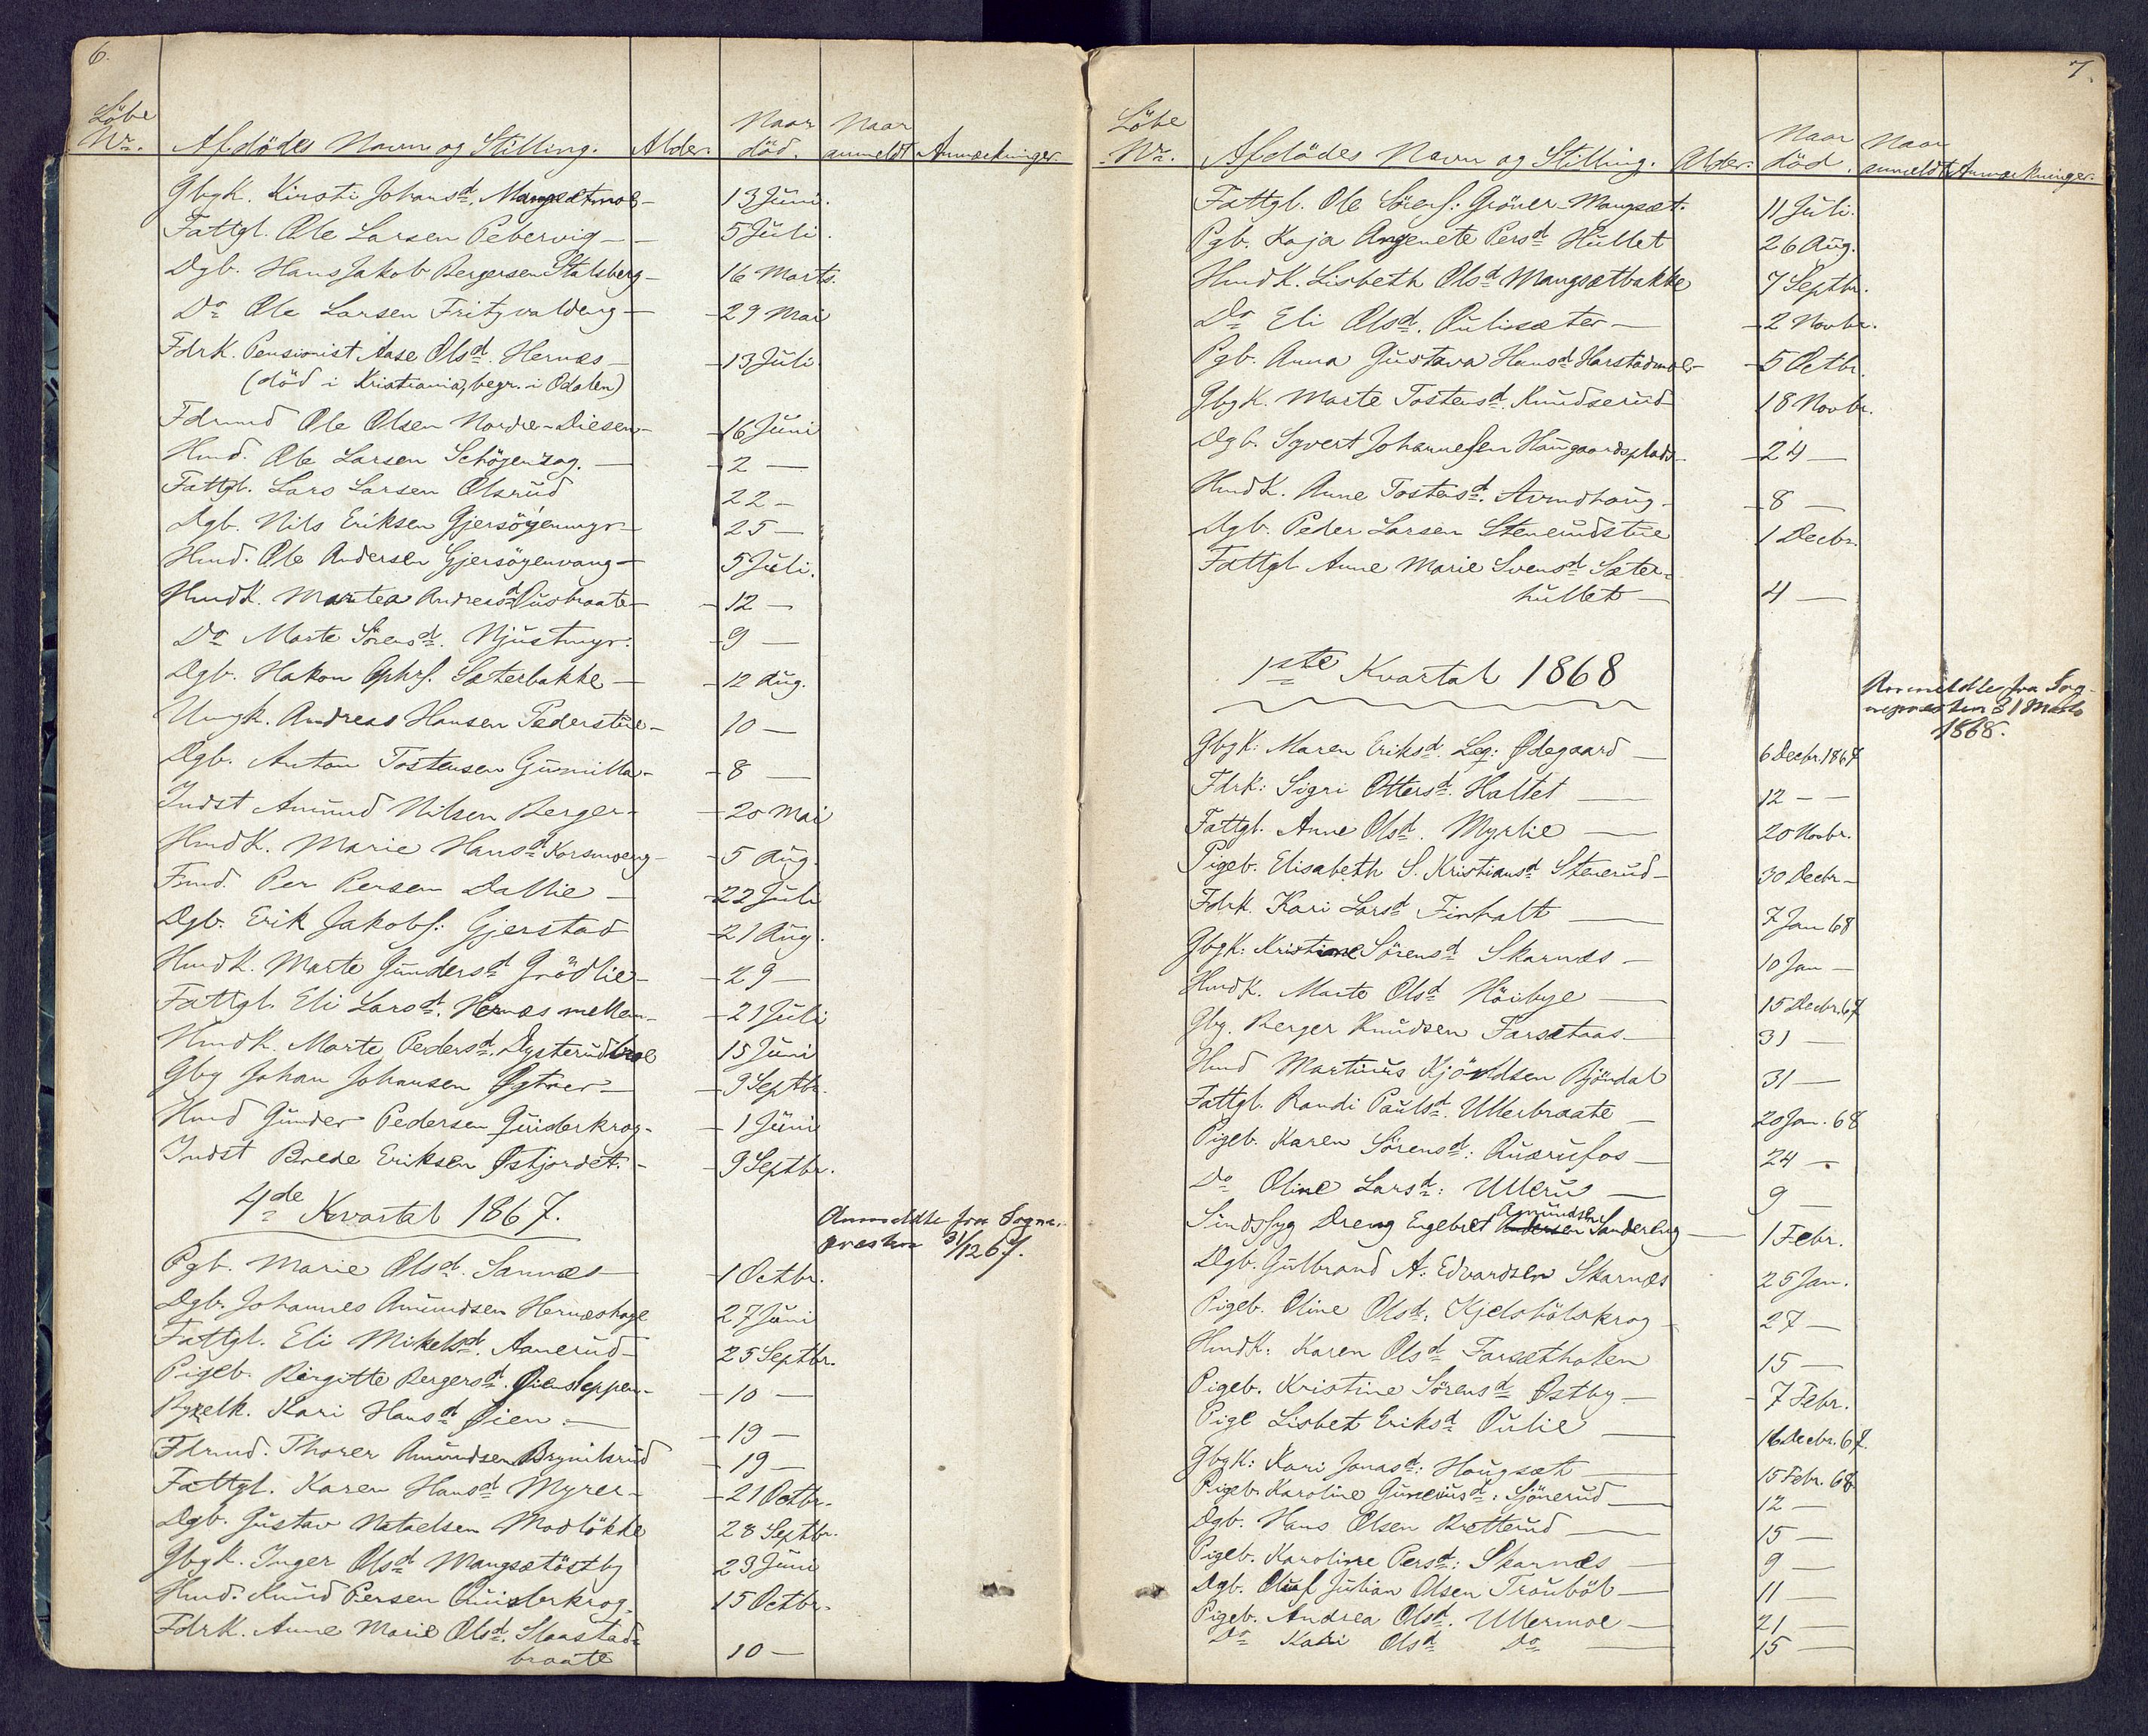 6.
Löbe
No. Afdödes Navn og Stilling. Alder. Naar död. Naar anmeldt Anmærkninger
GbgK. Kirsti Johansd. Mangsætmoe — 13 Juni.
Fattgl. Ole Larsen Pebervig — 5 Juli.
Dgb. Hans Jakob Bergersen Stalsberg — 16 Marts.
Do Ole Larsen — 29 Mai
FdrK. Pensionist Aase Olsd. Hernæs — 13 Juli
(död i Kristiania, begr. i Odalen)
Fdrmd Ole Olsen Nordre-Diesen — 16 Juni
Hmd. Ole Larsen — 2 —
Fattgl. Lars Larsen Olsrud 22 —
Dgb. Nils Eriksen — 25 —
Hmd. Ole Andersen Gjersöyenvang — 5 Juli.
HmdK. Martea Andreasd. — 12 —
Do Marte Sörensd. Njustmyr. — 9 —
Dgb. Hakon Sæterbakke — 12 Aug.
Ungk. Andreas Hansen Pederstue — 10 —
Dgb. Anton Tostensen — 8 —
Indst Amund Nilsen Berger — 20 Mai
HmdK. Marie Hansd. — 5 Aug.
Fmd. Per Persen Dallie — 22 Juli
Dgb. Erik Jakobs: Gjerstad — 21 Aug.
HmdK. Marte Gundersd. Grödlie — 29 —
Fattgl. Eli Larsd. Hernæs mellem — 21 Juli
HmdK. Marte Pedersd. 15 Juni
Gbg Johan Johansen — 9 Septbr.
Hmd Gunder Pedersen — 1 Juni
Indst Brede Eriksen Østjordet. — 9 Septbr.
4de Kvartal 1867.
Anmeldte fra Sogne-
presten 31/12 67.
Pgb. Marie Olsd. Sannæs — 1 Octbr.
Dgb. Johannes Amundsen Hernæshage 27 Juni
Fattgl. Eli Mikelsd. Aanerud — 25 Septbr.
Pigeb. Birgitte Bergersd. — 10 —
Kari Hansd. Øien — 19 —
Fdrmd. Thorer Amundsen Brynilsrud — 19 —
Fattgl. Karen Hansd. Myrer — 21 Octbr.
Dgb. Gustav Nataelsen Modlökke 28 Septbr.
GbgK. Inger Olsd. Mangsætöstby 23 Juni
Hmd. Knud Persen 15 Octbr.
FdrK. Anne Marie Olsd. Slaastad-
braate 10 —
7.
Löbe
No. Afdödes Navn og Stilling. Alder. Naar död. Naar anmeldt Anmærkninger.
Fattgl. Ole Sörens: Gröner-Mangsæt. 11 Juli.
Pgb. Kaja Angenete Persd. Hullet 26 Aug.
HmdK. Lisbeth Olsd. Mangsætbakke 7 Septbr.
Do Eli Olsd. Oulisæter — 2 Novbr.
Pgb. Anna Gustava Hansd. Harstadmoe — 5 Octbr.
GbgK. Marte Tostensd. Knudserud 18 Novbr.
Dgb. Syvert Johannesen Haugaardsplads — 24 —
HmdK. Anne Tostensd. — 8 —
Dgb. Peder Larsen 1 Decbr.
Fattgl. Anne Marie Svensd. Sæter-
hullet — 4 —
1ste Kvartal 1868
Anmeldte fra Sog-
nepresten 31 Marts
1868.
GbgK: Maren Eriksd. Leg: Ødegaard — 6 Decbr. 1867
FdrK: Sigri Ottersd. Haltet — 12 — —
Fattgl. Anne Olsd. Myrlie — 20 Novbr.
Pigeb. Elisabeth S. Kristiansd. Stenerud — 30 Decbr —
FdrK. Kari Larsd. Finholt — 7 Jan 68
GbgK: Kristine Sörensd. Skarnæs — 10 Jan —
HmdK. Marte Olsd. Höibye — 15 Decbr. 67
Gbg. Berger Knudsen Farsætaas — 31 —
Hmd Martinus Bjöndal 31 —
Fattgl. Randi Paulsd. Ullerbraate — 20 Jan. 68
Pigeb. Karen Sörensd: — 24 —
Do Oline Larsd: Ullern — 9 —
Amundsen
Sindssyg Dreng Engebret Andersen Sandereng — 1 Febr.
Dgb. Gulbrand A: Edvardsen Skarnæs 25 Jan.
Pigeb. Oline Olsd: — 27 —
HmdK: Karen Olsd. Farsætholen 15 —
Pigeb. Kristine Sörensd. Østby — 7 Febr.
Pige Lisbet Eriksd. Oulie — 16 Decbr. 67.
GbgK: Kari Jonasd: Hougsæt — 15 Febr. 68
Pigeb. Karoline Guneriusd: Sjönerud — 12 —
Dgb. Hans Olsen Bretterud — 15 —
Pigeb. Karoline Persd: Skarnæs — 9 —
Dgb. Oluf Julian Olsen Trouböl — 11 —
Pigeb. Andrea Olsd. Ullermoe — 21 —
Do Kari Olsd. Do — 15 —